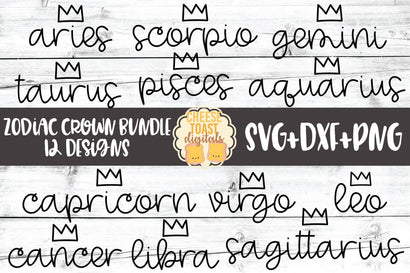 aries scorpio gemini
taurus pisces aquarius
ZODIAC CROWN BUNDLE
12 DESIGNS
CHEESE
TOAST
digitals
SVG+DXF+PNG
capricorn virgo leo
cancer libra sagittarius